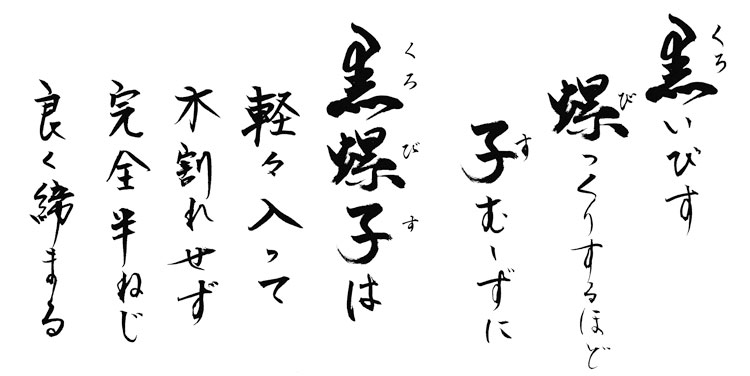 黒いびす
螺っくりするほど
子むーずに
黒螺子は
軽々入って
木割れせず
完全半ねじ
良く締まる
くろ
び
す
くろ
び
す